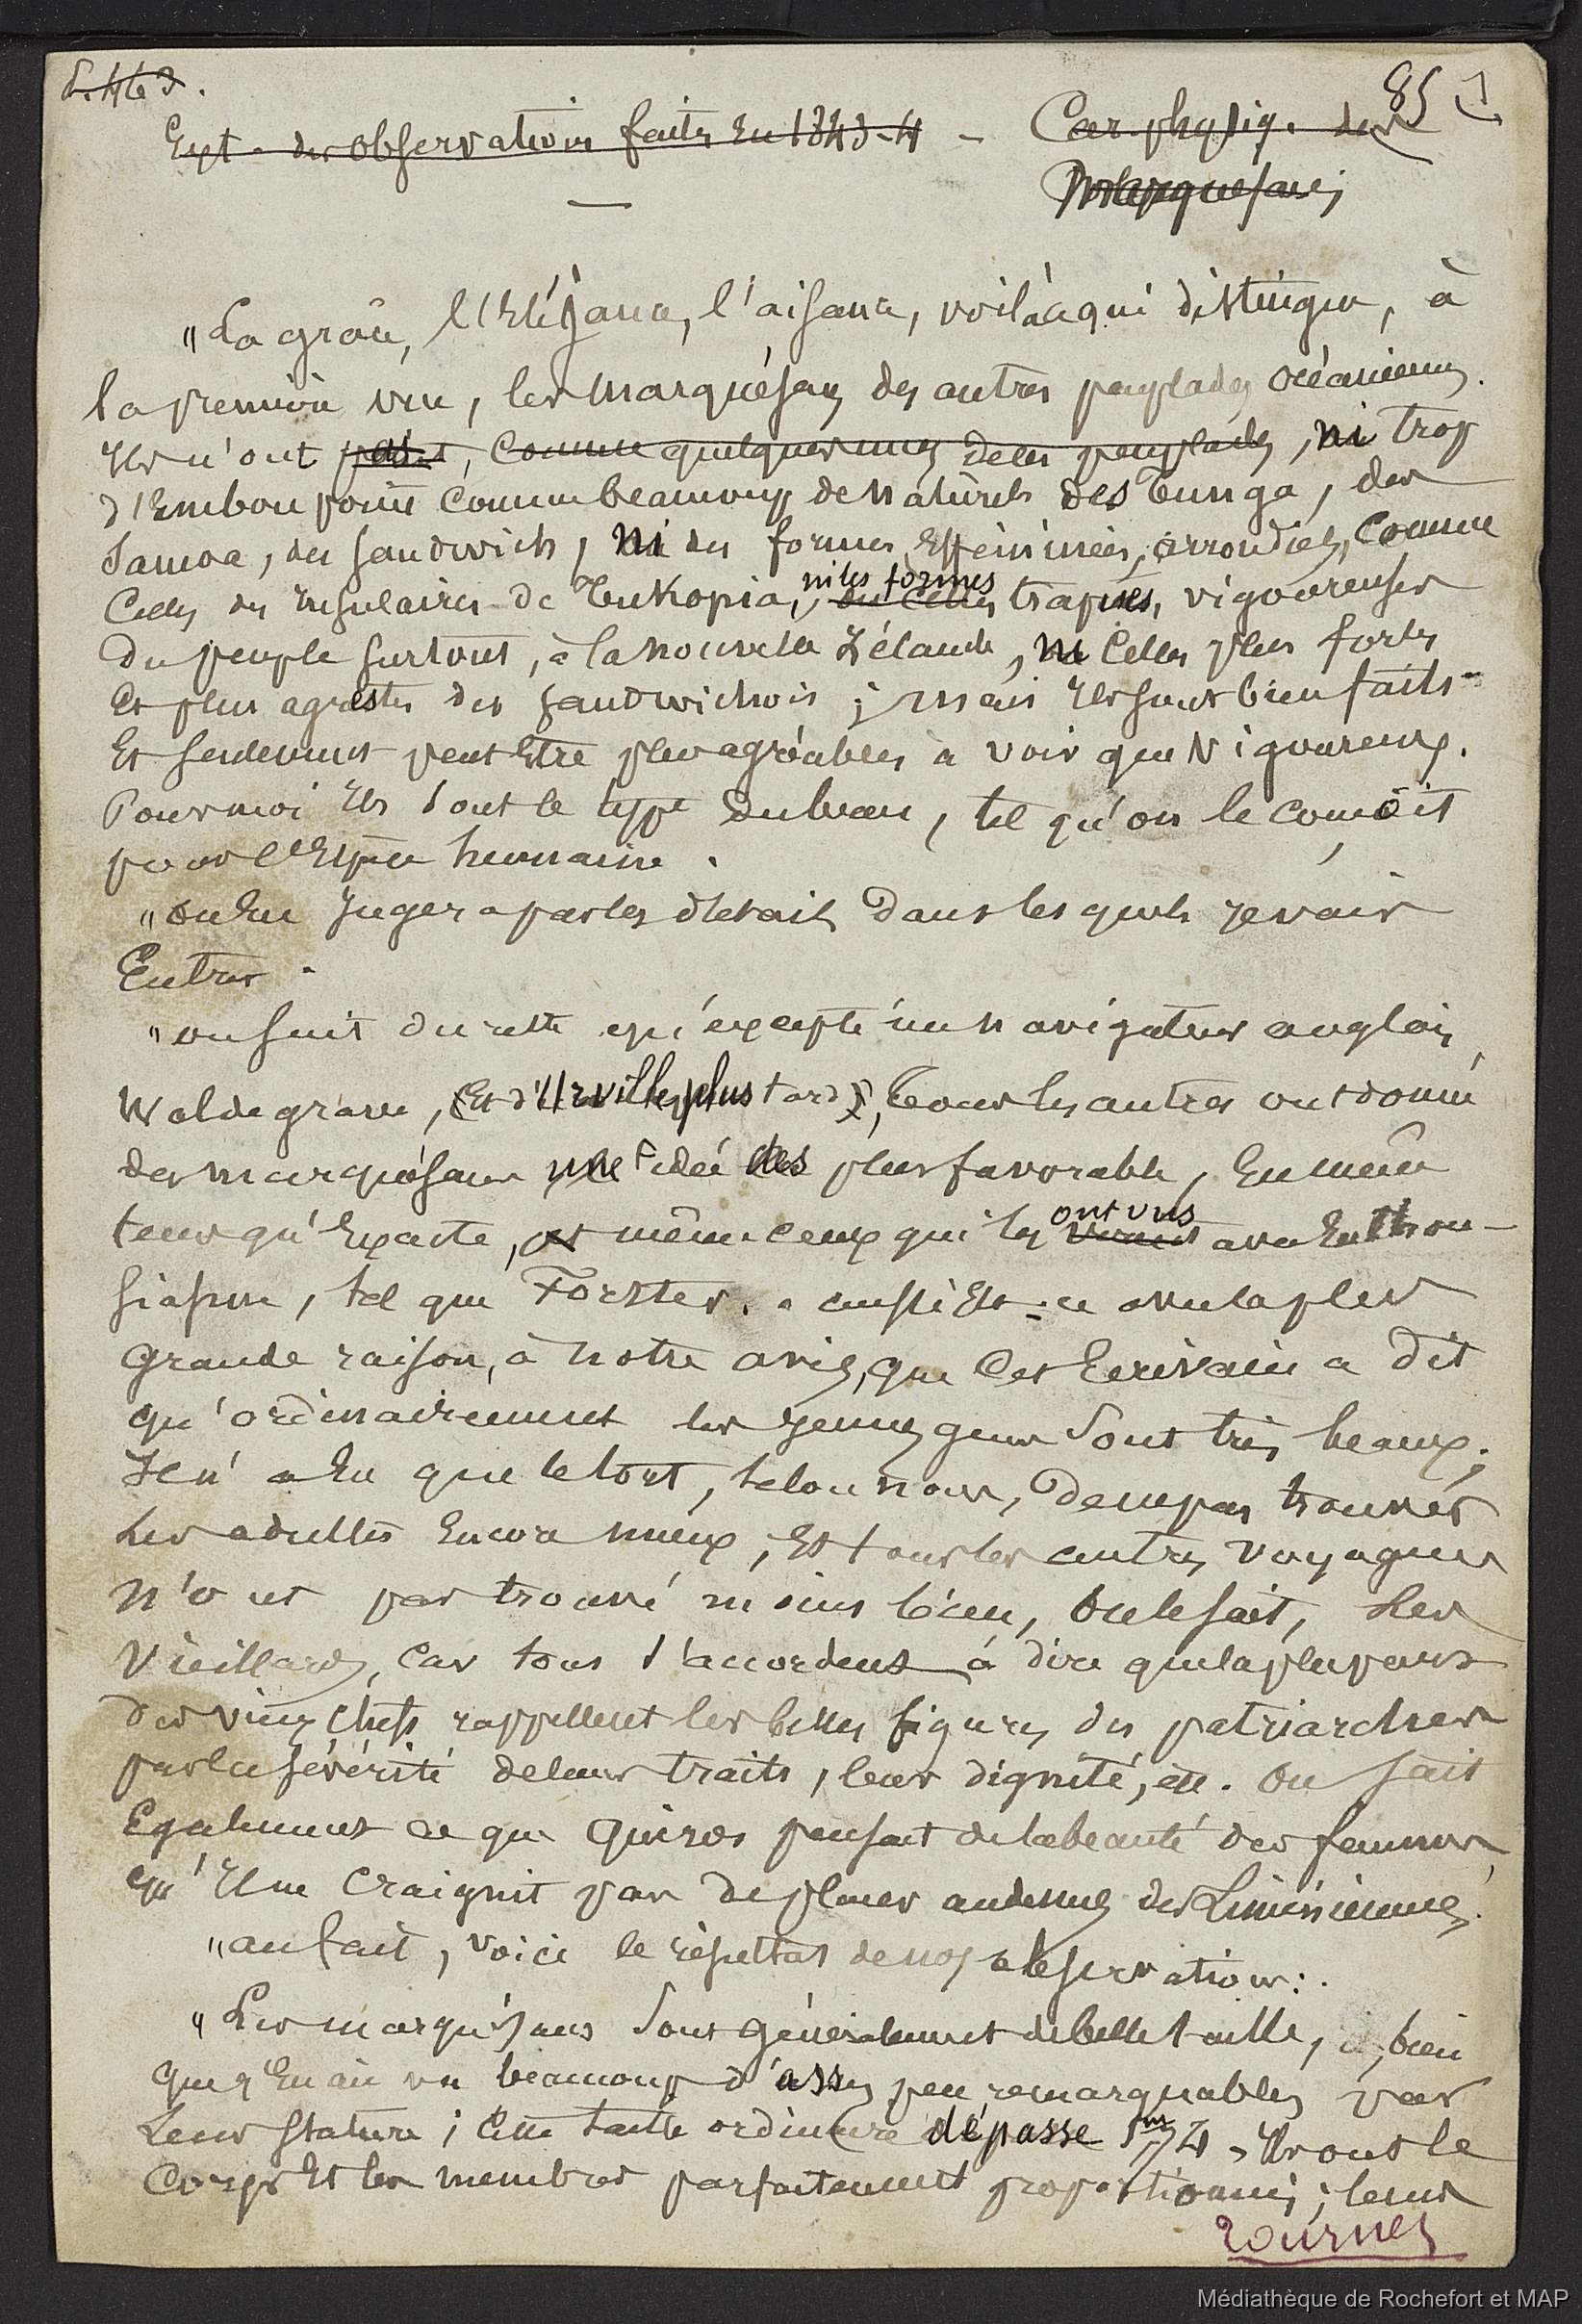 85
Ext. des observations faites en 1843-4 — Car. physiq. des
Marquésans
"La grâce, l'élégance, l'aisance, voilà ce qui distingue, à
la première vue, les marquésans des autres peuplades océaniennes.
Ils n'ont point, comme quelques unes de ces peuplades, ni trop
d'embonpoint comme beaucoup de naturels des Tunga, des
Samoa, des Sandwich, ni des formes efféminées, arrondies, comme
celles des insulaires de Tukopia, ou celles ni les formes trapues, vigoureuses
du peuple surtout, à la nouvelle Zélande, ni celles plus fortes
et plus agrestes des Sandwichois ; mais ils sont bien faits
et seulement peut être plus agréables à voir que vigoureux.
Pour moi ils sont le type du beau, tel qu'on le conçoit
pour l'espèce humaine.
"on en jugera par les détails dans lesquels je vais
entrer.
"on sait du reste qu'excepté un navigateur anglais,
Waldegrave, (et d'Urville plus tard), tous les autres ont donné
des marquésans une idée des plus favorable, en même
tems qu'exacte, et même ceux qui les ont vus avec enthou-
siasme, tel que Forster. aussi est-ce avec la plus
grande raison, à notre avis, que cet écrivain a dit
qu'ordinairement les jeunes gens sont très beaux ;
il n'a eu que le tort, selon nous, de ne pas trouver
les adultes encore mieux, et tous les autres voyageurs
n'ont pas trouvé moins bien, on le sait, les
vieillards, car tous s'accordent à dire que la plupart
des vieux chefs rappellent les belles figures des patriarches
par la sévérité de leurs traits, leur dignité, etc. On sait
également ce que Quiros pensait de la beauté des femmes,
qu'il ne craignit pas de placer au dessus des Liméniennes.
"au fait, voici le résultat de nos observations :
"Les marquésans sont généralement de belle taille, bien
que j'en aie vu beaucoup d'assez peu remarquables par
leur stature ; cette taille ordinaire dépasse 1m,74. Ils ont le
corps et les membres parfaitement proportionnés ; leurs
Tournez
Médiathèque de Rochefort et MAP